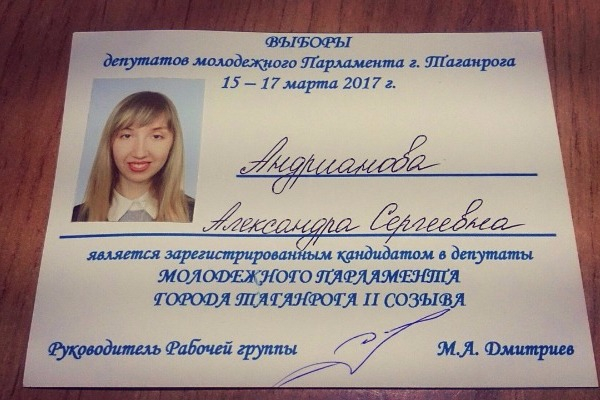 ВЫБОРЫ
депутатов молодежного Парламента г. Таганрога
15 – 17 марта 2017 г.
Андрианова
Александра Сергеевна
является зарегистрированным кандидатом в депутаты
МОЛОДЕЖНОГО ПАРЛАМЕНТА
ГОРОДА ТАГАНРОГА II СОЗЫВА
Руководитель Рабочей группы М.А. Дмитриев